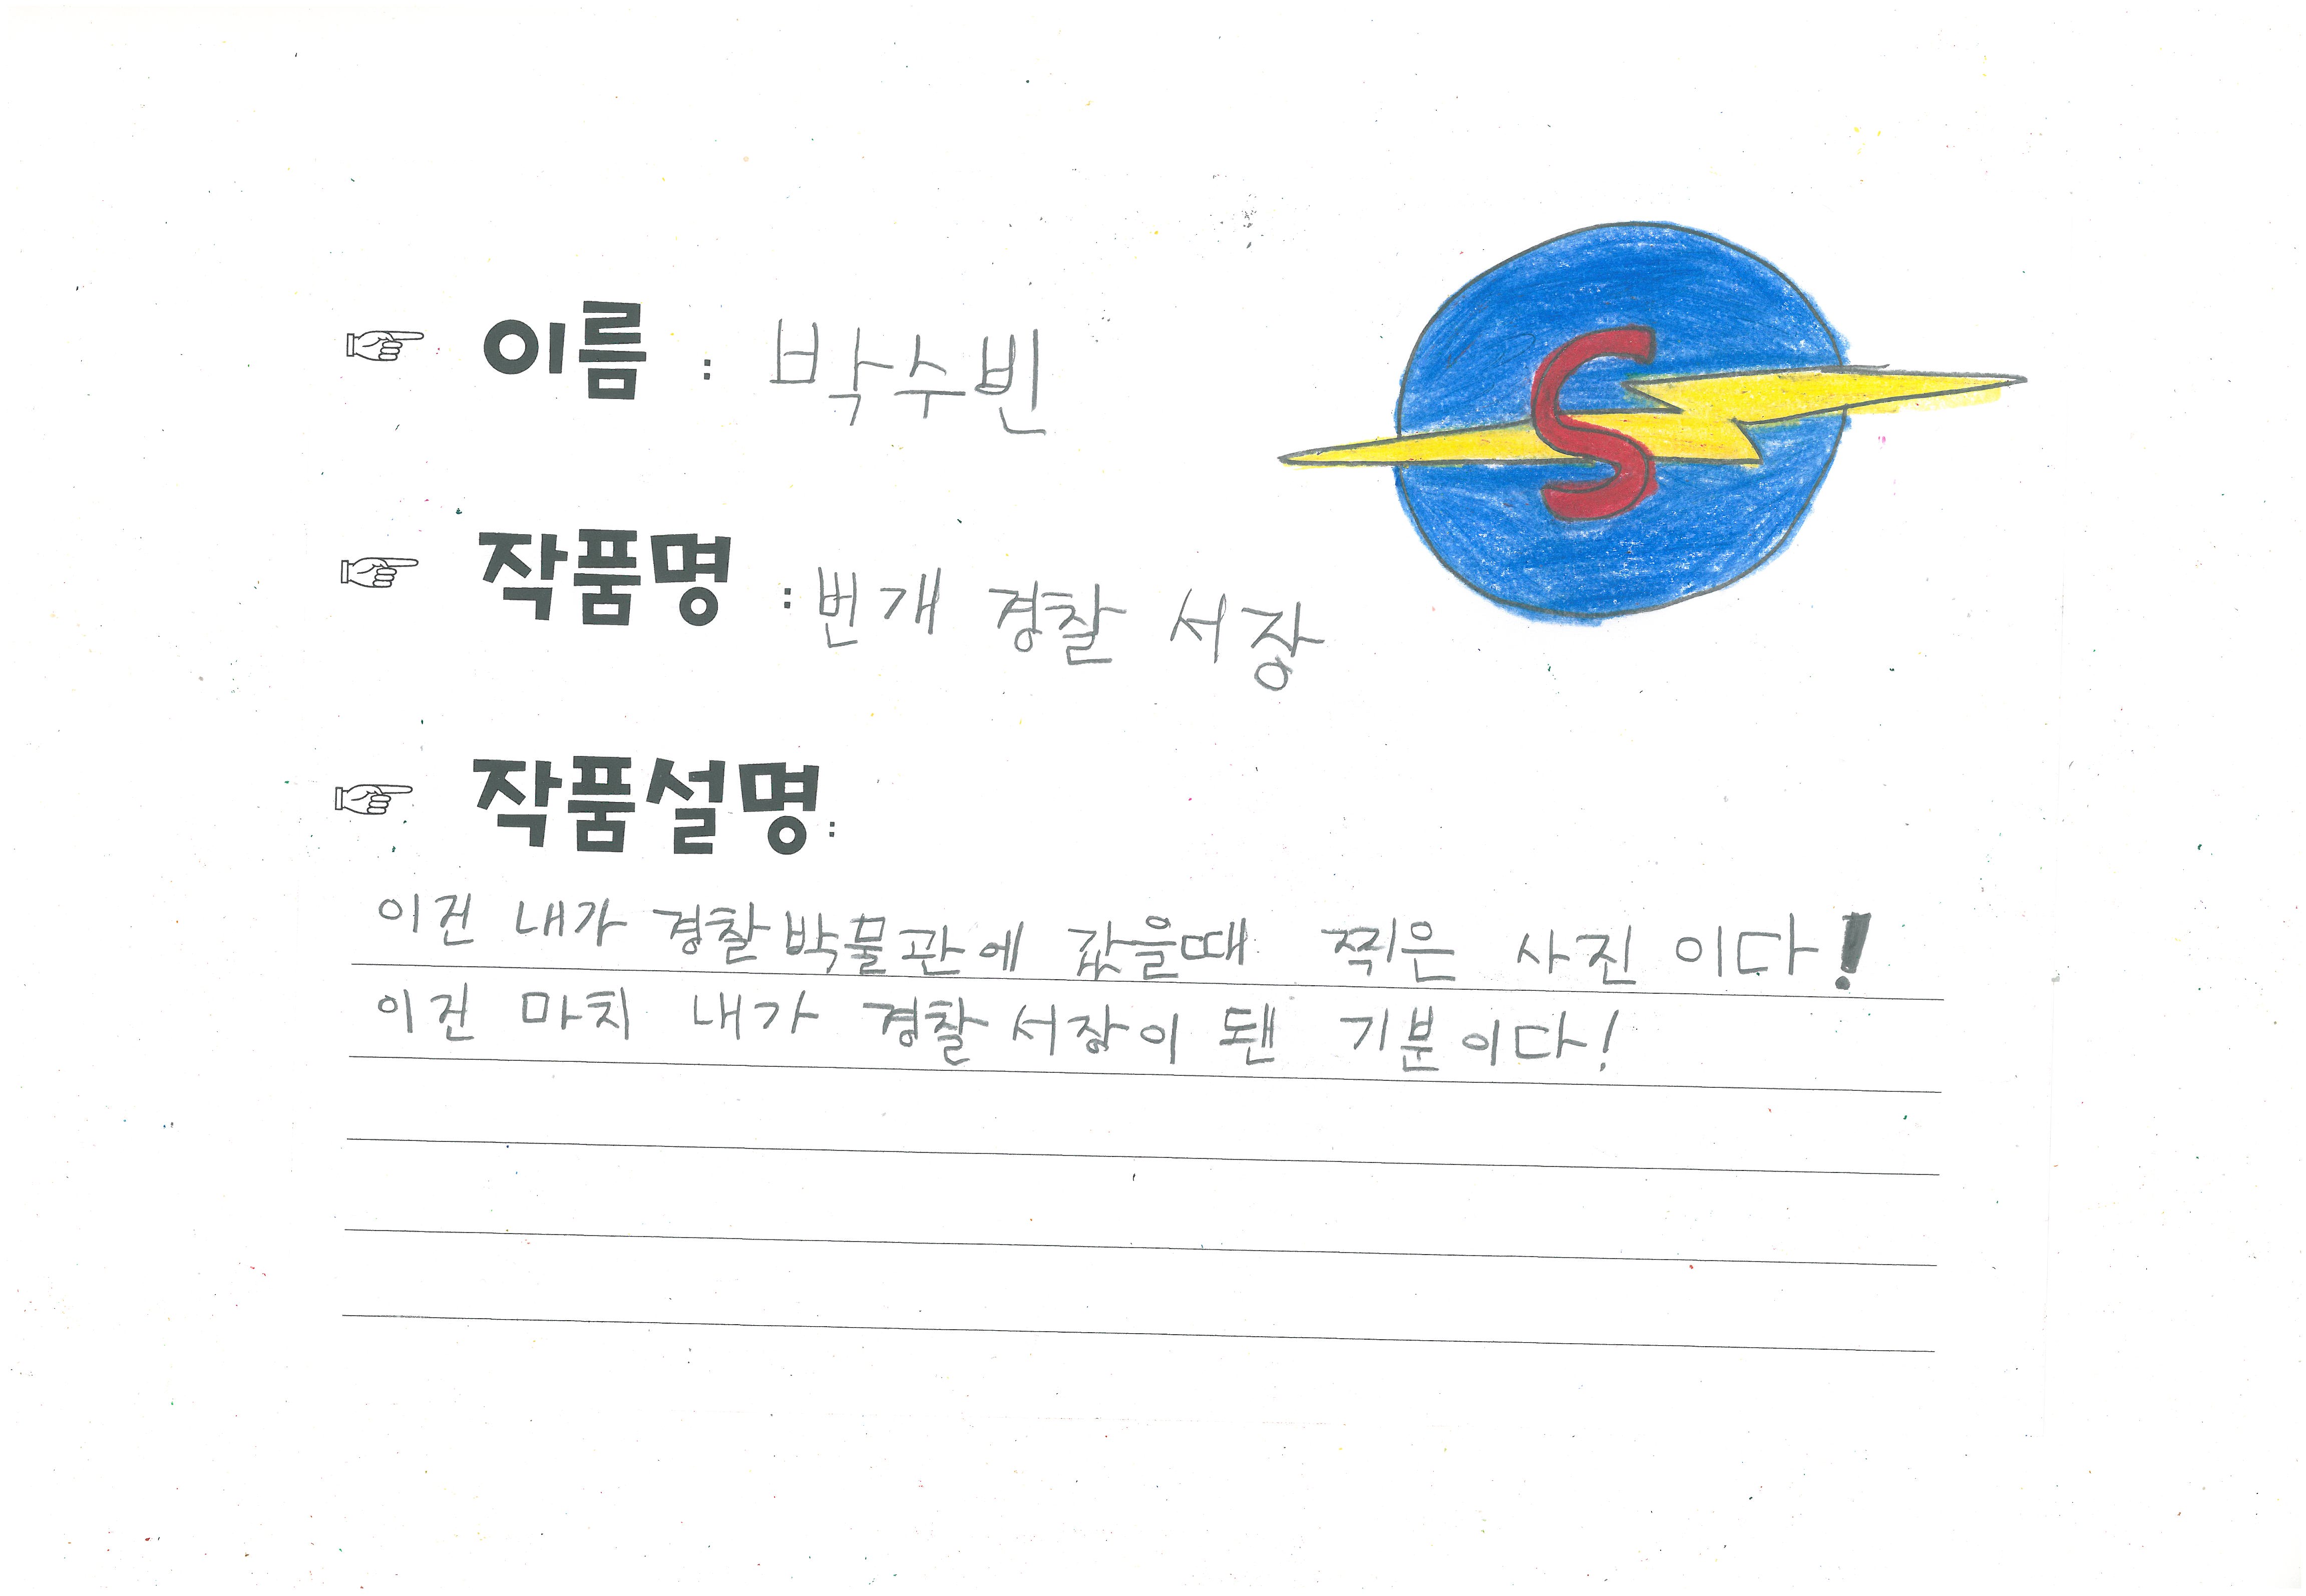 ☞ 이름 : 박수빈
S
☞ 작품명 : 번개 경찰 서장
☞ 작품설명:
이건 내가 경찰박물관에 값을때 찍은 사진 이다!
이건 마치 내가 경찰서장이 됀 기분이다!